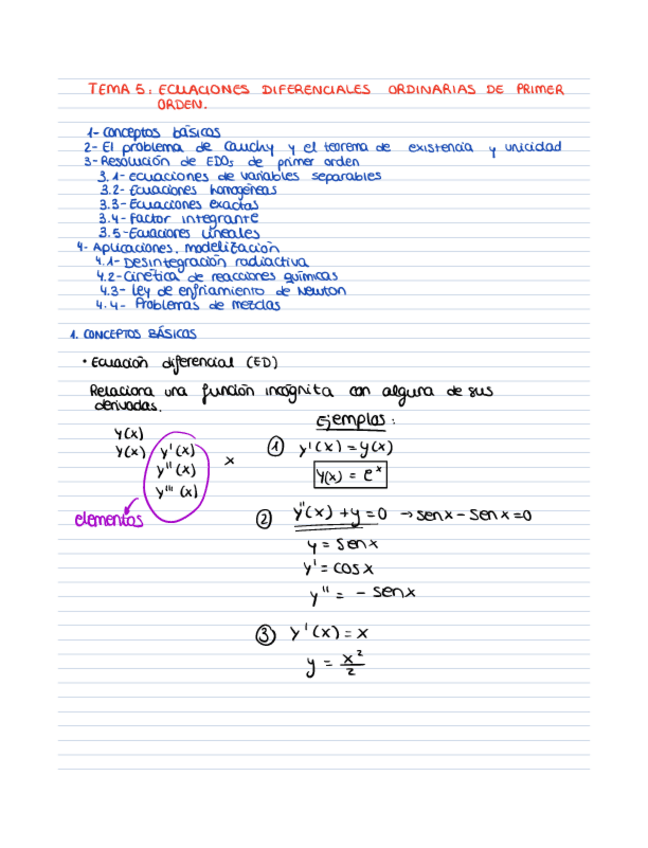 TEMA 5: ECUACIONES DIFERENCIALES ORDINARIAS DE PRIMER
ORDEN.
1- Conceptos básicos
2- El problema de Cauchy y el teorema de existencia y unicidad
3- Resolución de EDOs de primer orden
3.1- ecuaciones de variables separables
3.2- Ecuaciones homogéneas
3.3- Ecuaciones exactas
3.4- Factor integrante
3.5- Ecuaciones lineales
4- Aplicaciones. modelización
4.1- Desintegración radiactiva
4.2- Cinética de reacciones químicas
4.3- Ley de enfriamiento de Newton
4.4- Problemas de mezclas
1. CONCEPTOS BÁSICOS
• Ecuación diferencial (ED)
Relaciona una función incógnita con alguna de sus
derivadas.
y(x)
y(x) y'(x)
y''(x)
y'''(x)
x
elementos
Ejemplos:
① y'(x) = y(x)
y(x) = e^x
② y''(x) + y = 0 → sen x - sen x = 0
y = sen x
y' = cos x
y'' = - sen x
③ y'(x) = x
y = x²/2